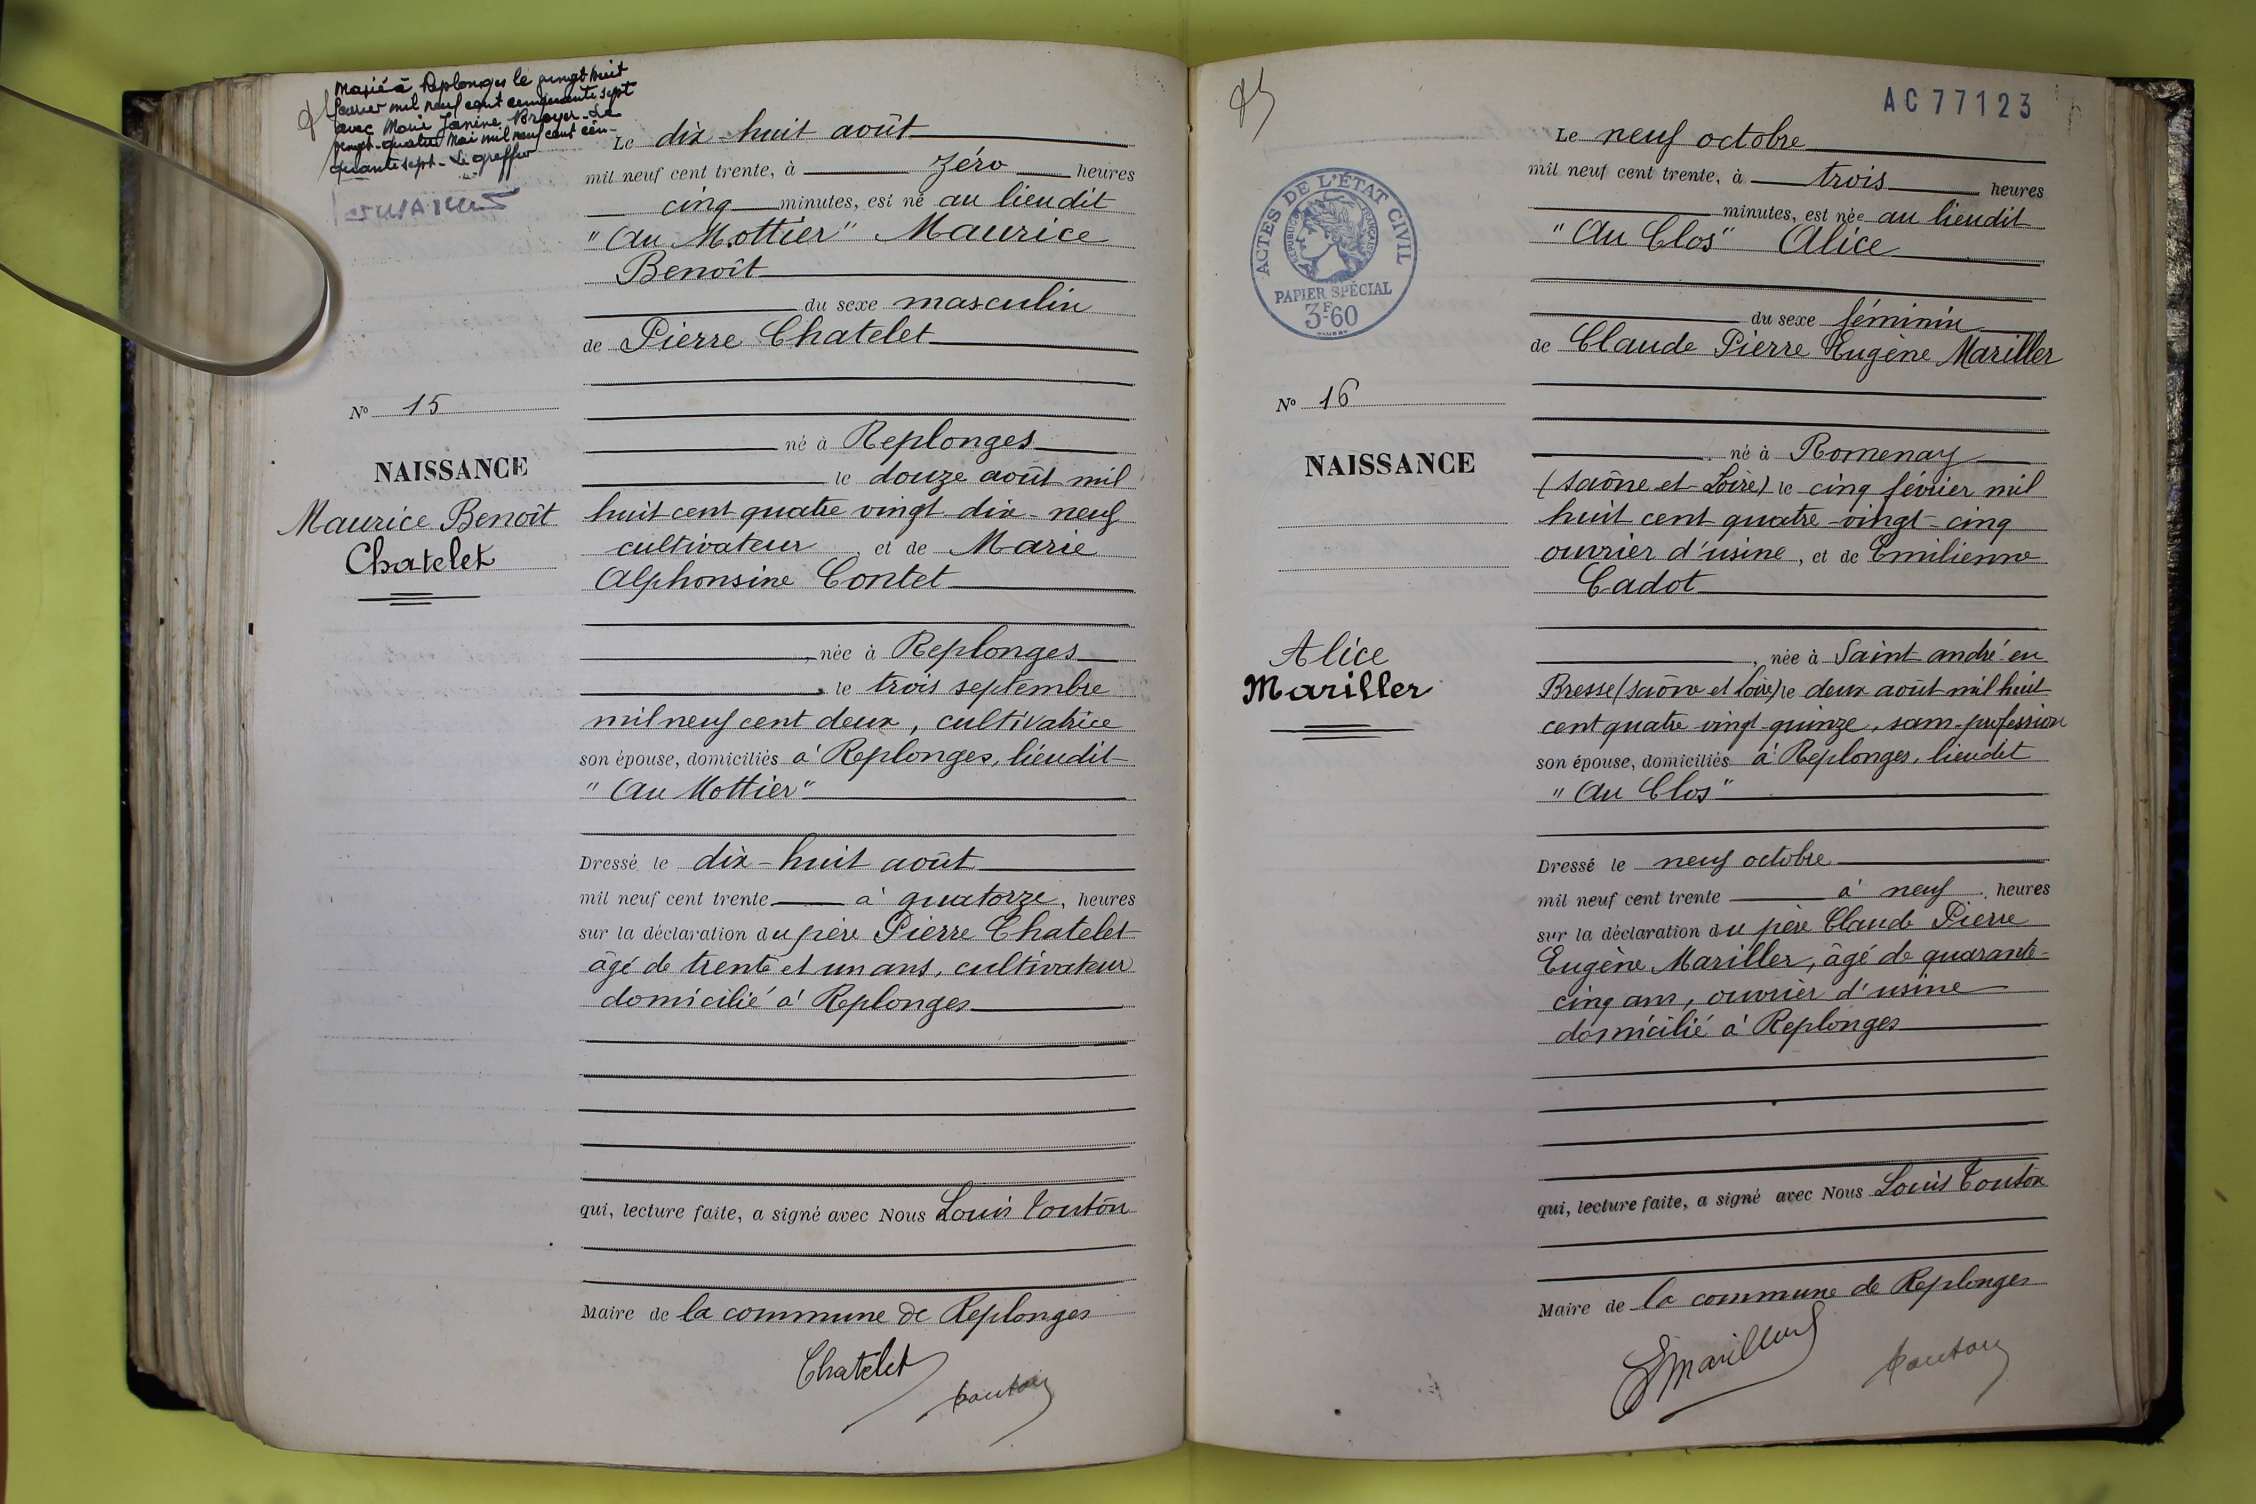 Marié à Replonges le vingt huit
février mil neuf cent cinquante sept
avec Marie Janine Broyer. Le
vingt-quatre Mai mil neuf cent cin-
quante sept - Le greffier
Le dix-huit août
mil neuf cent trente, à zéro heures
cinq minutes, est né au lieudit
"Au Mottier" Maurice
Benoît
du sexe masculin
de Pierre Chatelet
né à Replonges
le douze août mil
huit cent quatre vingt dix-neuf
cultivateur, et de Marie
Alphonsine Contet
, née à Replonges
, le trois septembre
mil neuf cent deux, cultivatrice
son épouse, domiciliés à Replonges, lieudit
"Au Mottier"
Dressé le dix-huit août
mil neuf cent trente à quatorze, heures
sur la déclaration du père Pierre Chatelet
âgé de trente et un ans, cultivateur
domicilié à Replonges
qui, lecture faite, a signé avec Nous Louis Touton
Maire de la commune de Replonges
Chatelet
Touton
No 15
NAISSANCE
Maurice Benoît
Chatelet
AC 77123
ACTES DE L'ÉTAT CIVIL
RÉPUBLIQUE FRANÇAISE
PAPIER SPÉCIAL
3F.60
No 16
NAISSANCE
Alice
Mariller
Le neuf octobre
mil neuf cent trente, à trois heures
minutes, est née au lieudit
"Au Clos" Alice
du sexe féminin
de Claude Pierre Eugène Mariller
né à Romenay
(Saône et Loire) le cinq février mil
huit cent quatre-vingt-cinq
ouvrier d'usine, et de Emilienne
Cadot
, née à Saint André en
Bresse (Saône et Loire) le deux août mil huit
cent quatre vingt quinze, sans profession
son épouse, domiciliés à Replonges, lieudit
"Au Clos"
Dressé le neuf octobre
mil neuf cent trente à neuf heures
sur la déclaration du père Claude Pierre
Eugène Mariller, âgé de quarante-
cinq ans, ouvrier d'usine
domicilié à Replonges
qui, lecture faite, a signé avec Nous Louis Touton
Maire de la commune de Replonges
E Mariller
Touton